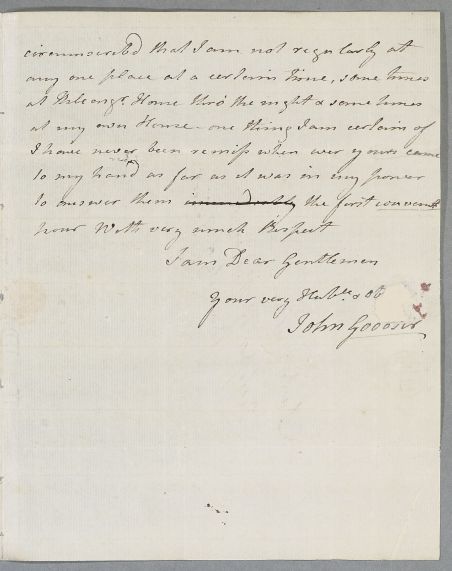 circumscribd that I am not regularly at
any one place at a certain time, some times
at Home thro the night & some times
at my own House - one thing I am certain of
I have never been remiss when ever yours came
to my hand as far as it was in my power
to answer them immediately the first convent
hour With very much Respect
I am Dear Gentlemen
Your very Hube & Ob
John